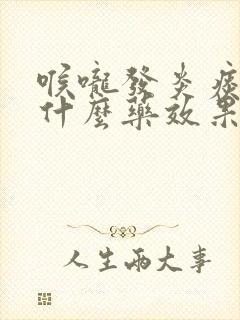 喉嚨發炎症
什麼藥效果
人生兩大事